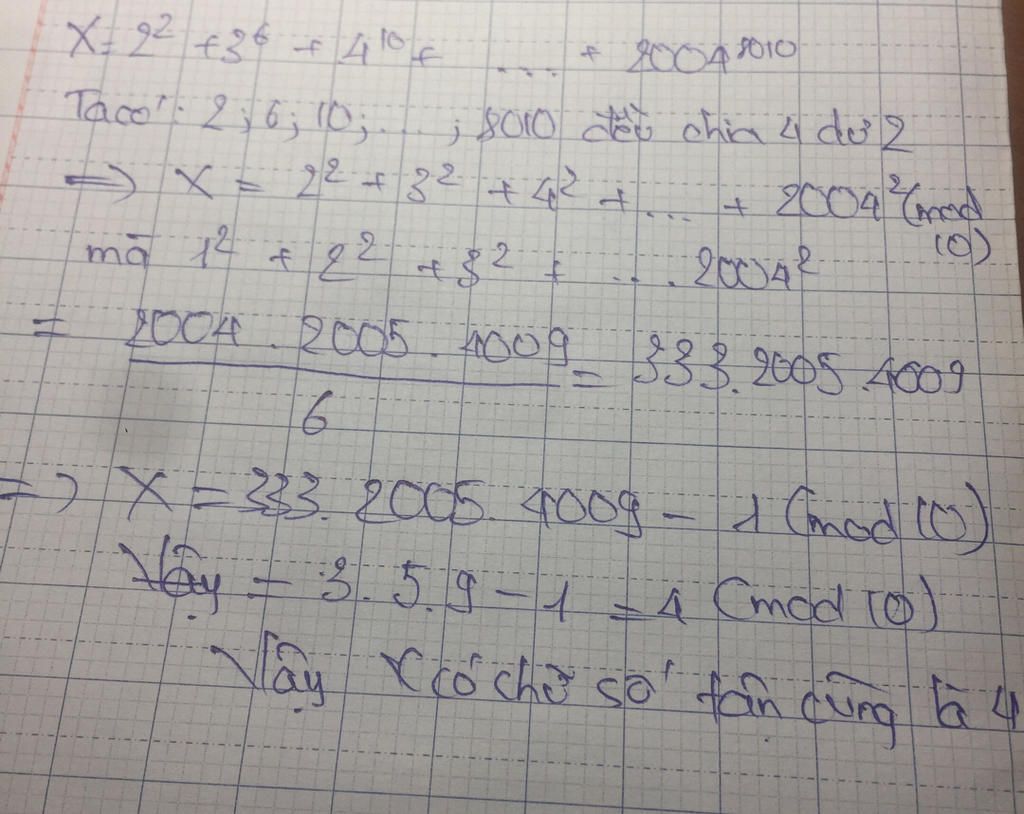 X = 2² + 3⁶ + 4¹⁰ + .... + 2004⁸⁰¹⁰
Ta có: 2; 6; 10; ...; 8010 đều chia 4 dư 2
=> X = 2² + 3² + 4² + ... + 2004² (mod 10)
mà 1² + 2² + 3² + .... 2004²
= 2004 . 2005 . 4009 / 6 = 333. 2005 . 4009
=> X = 333. 2005. 4009 - 1 (mod 10)
Vậy = 3. 5. 9 - 1 = 4 (mod 10)
Vậy X có chữ số tận cùng là 4